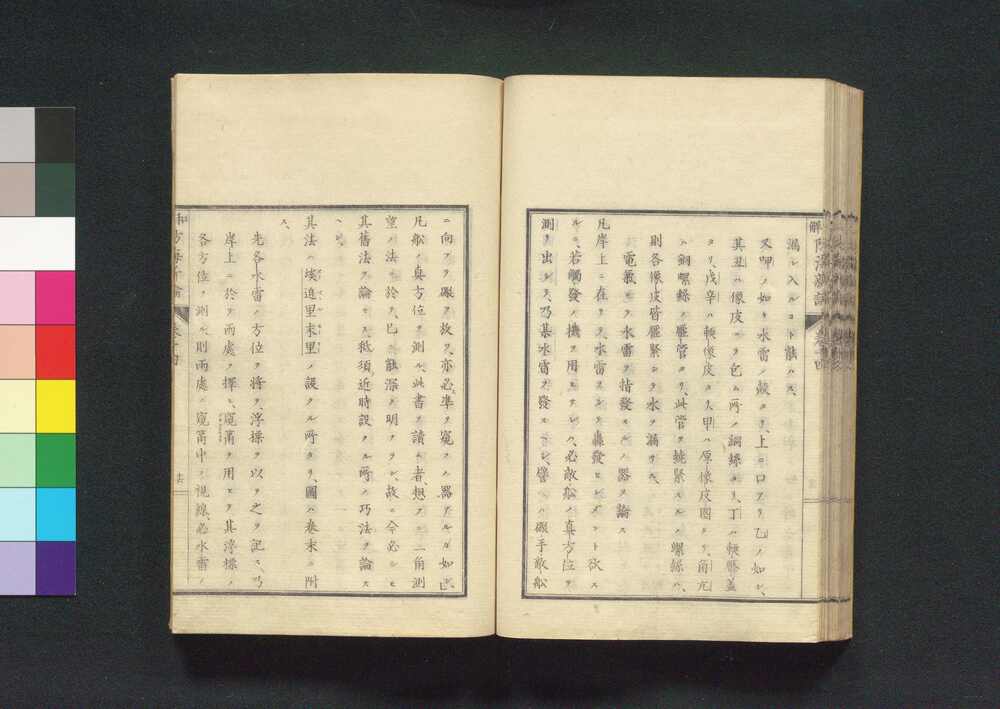 漏レ入ルコト能ハス、
又呷ノ如キ水雷ノ殻ヨリ、上ニ口アリ乙ノ如シ、
其丑ハ像皮ニテ包ム所ノ銅線ナリ、丁ハ軟螺蓋
ナリ、戊辛ハ軟像皮ナリ甲ハ原像皮圏ナリ、角亢
ハ銅螺線ノ壓管ナリ、此管ヲ蟯緊スルノ螺絲ハ、
則各像皮皆壓緊シテ水ヲ漏サス、
電氣ヲ以テ水雷ヲ指發スルノ器ヲ論ス
凡岸上ニ在リテ、水雷ヲシテ轟發セシメント欲ス
ルニ、若觸發ノ機ヲ用ヒサレハ、必敵船ノ真方位ヲ
測リ出シテ、乃某水雷ヲ發スルシ、譬ヘハ礟手敵船
ニ向テ礟ヲ放ツニ、亦必準ヲ窺フノ器アルカ如シ、
凡船ノ真方位ヲ測ル、此書ヲ讀ム者、想フニ三角測
望ノ法ニ於テ、已ニ能深ク明ラカナレハ、故ニ今必シモ
其舊法ヲ論セス、祗須近時設クル所ノ巧法ヲ論ス
ヘシ、
其法ハ埃追里末里ノ設クル所ナリ、圖ハ卷末ニ附
ス、
先各水雷ノ方位ヲ將テ、浮標ヲ以テ之ヲ記ス、乃
岸上ニ於テ兩處ヲ擇ヒ、窺筩ヲ用ヒテ其浮標ノ
各方位ヲ測ル、則兩處ノ窺筩中ノ視線、必水雷ノ